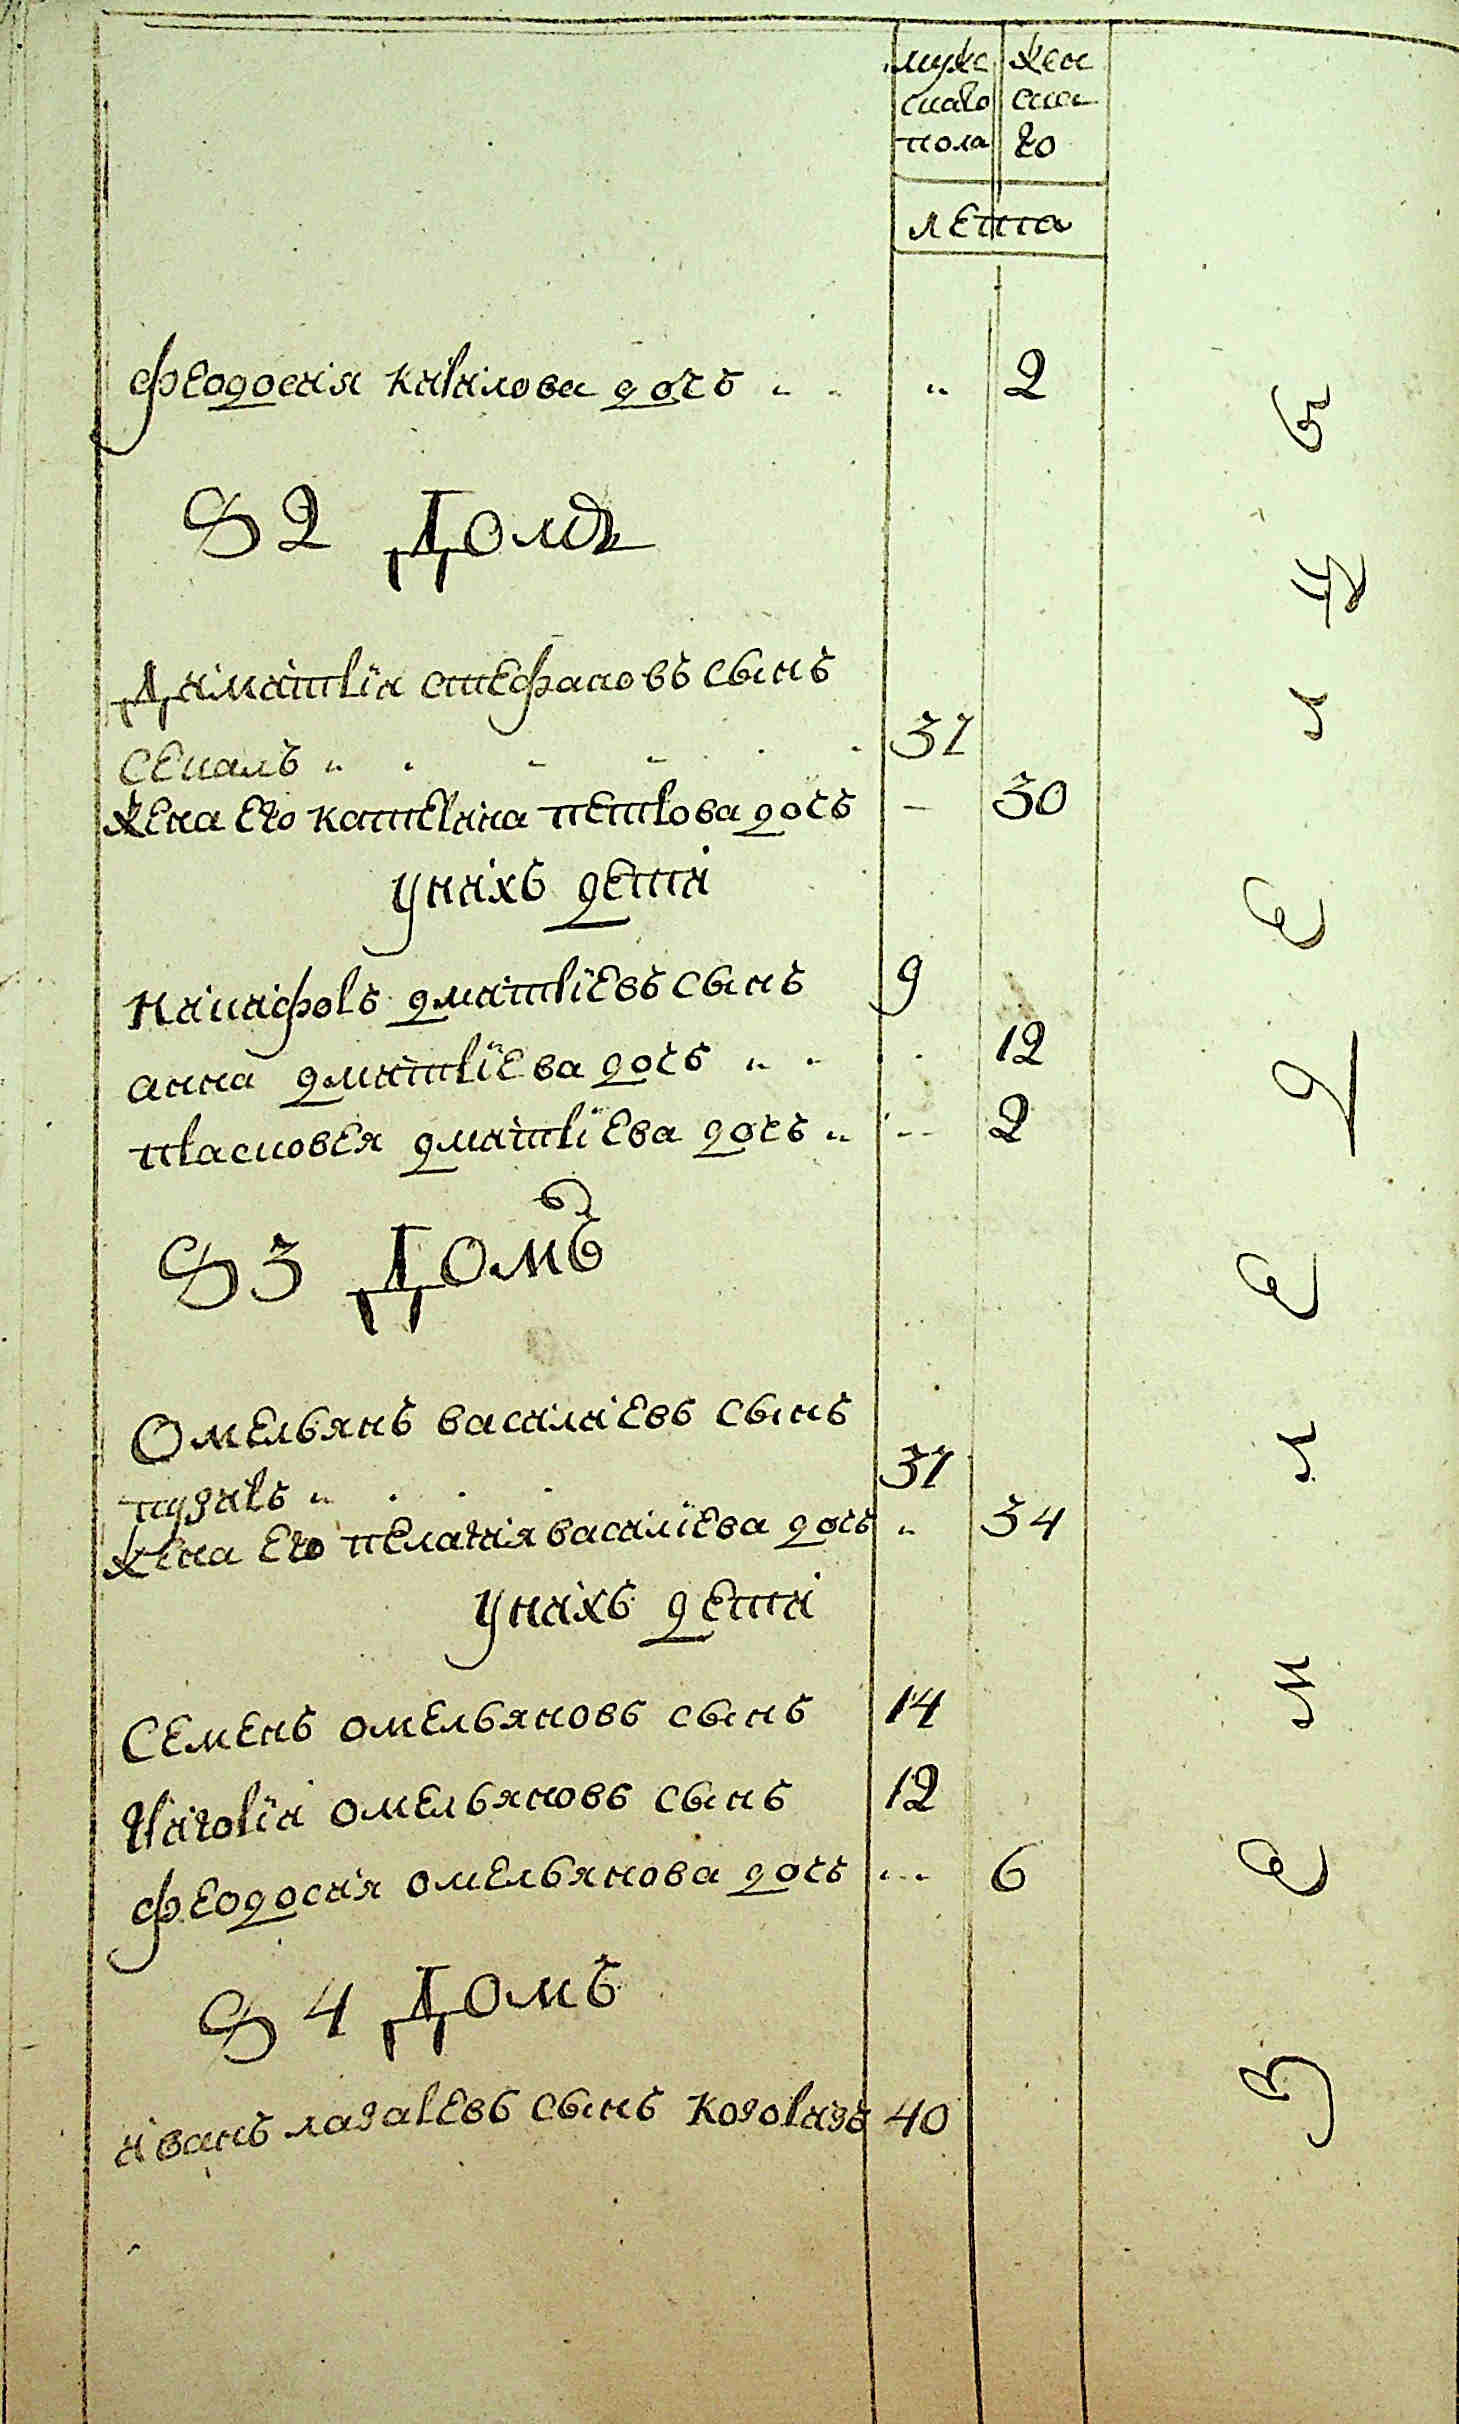 мужс
скаго
пола
жен
скаго
летта
феодосия кирилова дочь 2
§ 2 Домъ
Димитрїи стефановъ сынъ
секалъ 37
жена его катерина петрова дочь 30
у нихъ дети
никифоръ дмитрїевъ сынъ 9
анна дмитрїева дочь 12
прасковея дмитрїева дочь 2
§ 3 Домъ
Омельянъ василиевъ сынъ
пузиръ 37
жена его пелагия василїева дочь 34
у нихъ дети
Семенъ омельяновъ сынъ 14
Григорїи омельяновъ сынъ 12
феодосия омельянова дочь 6
§ 4 Домъ
иванъ лазаревъ сынъ козоризъ 40